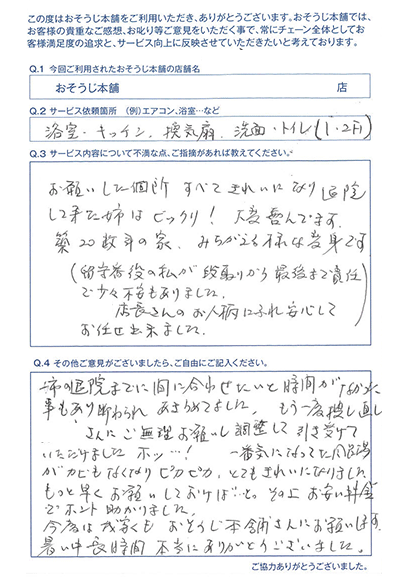 この度はおそうじ本舗をご利用いただき、ありがとうございます。おそうじ本舗では、
お客様の貴重なご感想、お叱り等ご意見をいただく事で、常にチェーン全体としてお
客様満足度の追求と、サービス向上に反映させていただきたいと考えております。
Q.1 今回ご利用されたおそうじ本舗の店舗名
おそうじ本舗 店
Q.2 サービス依頼箇所 (例)エアコン、浴室…など
浴室・キッチン、換気扇、洗面・トイレ(1・2F)
Q.3 サービス内容について不満な点、ご指摘があれば教えてください。
お願いした個所 すべてきれいになり退院
して来た姉はビックリ! 大変喜んでます。
築20数年の家、みちがえる様な変身です
(留守番役の私が段取りから最後まで責任
で少々不安もありました。
店長さんのお人柄にふれ安心して
お任せ出来ました。
Q.4 その他ご意見がございましたら、ご自由にご記入ください。
姉の退院までに間に合わせたいと時間がなかった
事もあり断わられ あきらめてました。もう一度捜し直し
さんにご無理お願いし調整して引き受けて
いただけました ホッ…! 一番気になってた風呂場
がカビもなくなりピカピカ、とてもきれいになりました
もっと早くお願いしておけば…と。その上お安い料金
でホント助かりました。
今度は我家もおそうじ本舗さんにお願いします
暑い中長時間本当にありがとうございました。
ご協力ありがとうございました。